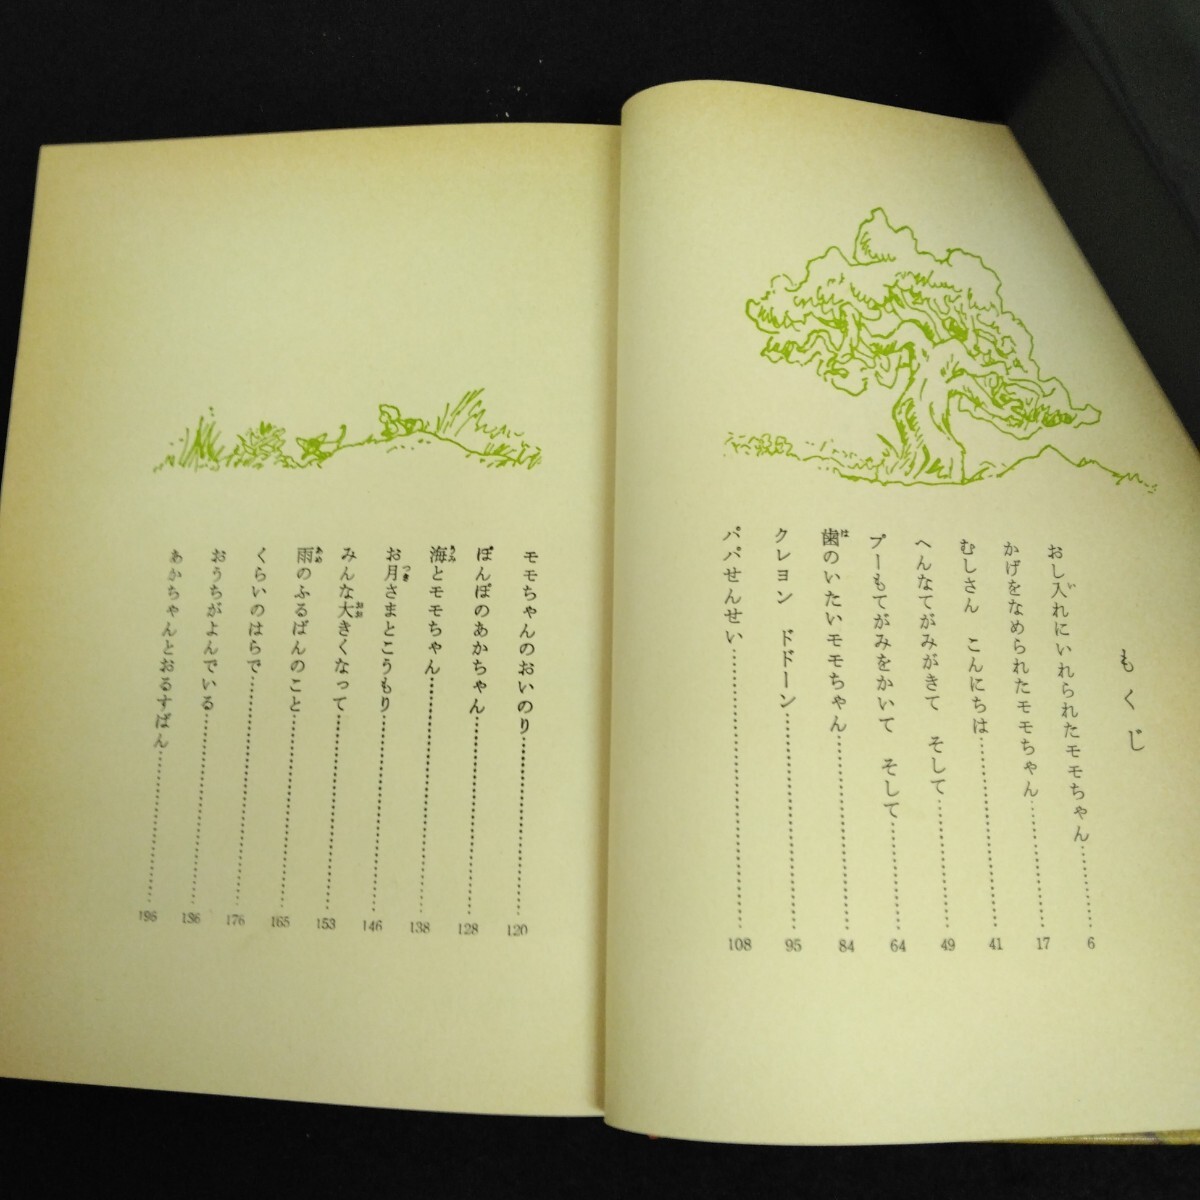 もくじ
おし入れにいれられたモモちゃん……………6
かげをなめられたモモちゃん……………17
むしさん　こんにちは……………41
へんなてがみがきて　そして……………49
プーもてがみをかいて　そして……………64
歯のいたいモモちゃん……………84
クレヨン　ドドーン……………95
パパせんせい……………108
モモちゃんのおいのり……………120
ぽんぽのあかちゃん……………128
海とモモちゃん……………138
お月さまとこうもり……………146
みんな大きくなって……………153
雨のふるばんのこと……………165
くらいのはらで……………176
おうちがよんでいる……………186
あかちゃんとおるすばん……………196